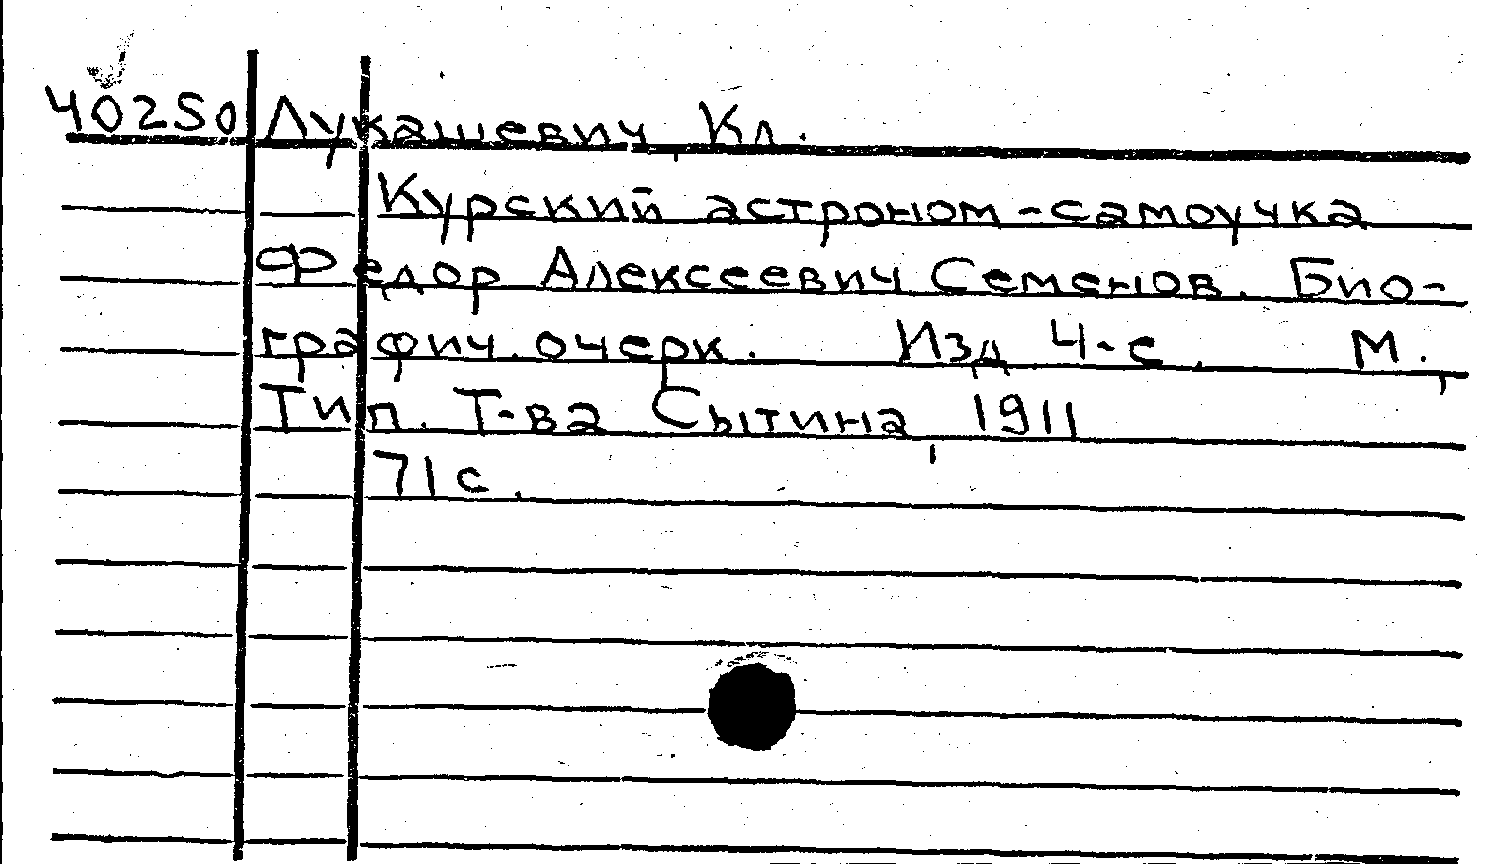 40250 Лукашевич, Кл.
Курский астроном-самоучка
Федор Алексеевич Семенов. Био-
графич. очерк. Изд. 4-е. М.,
Тип. Т-ва Сытина, 1911
71 с.